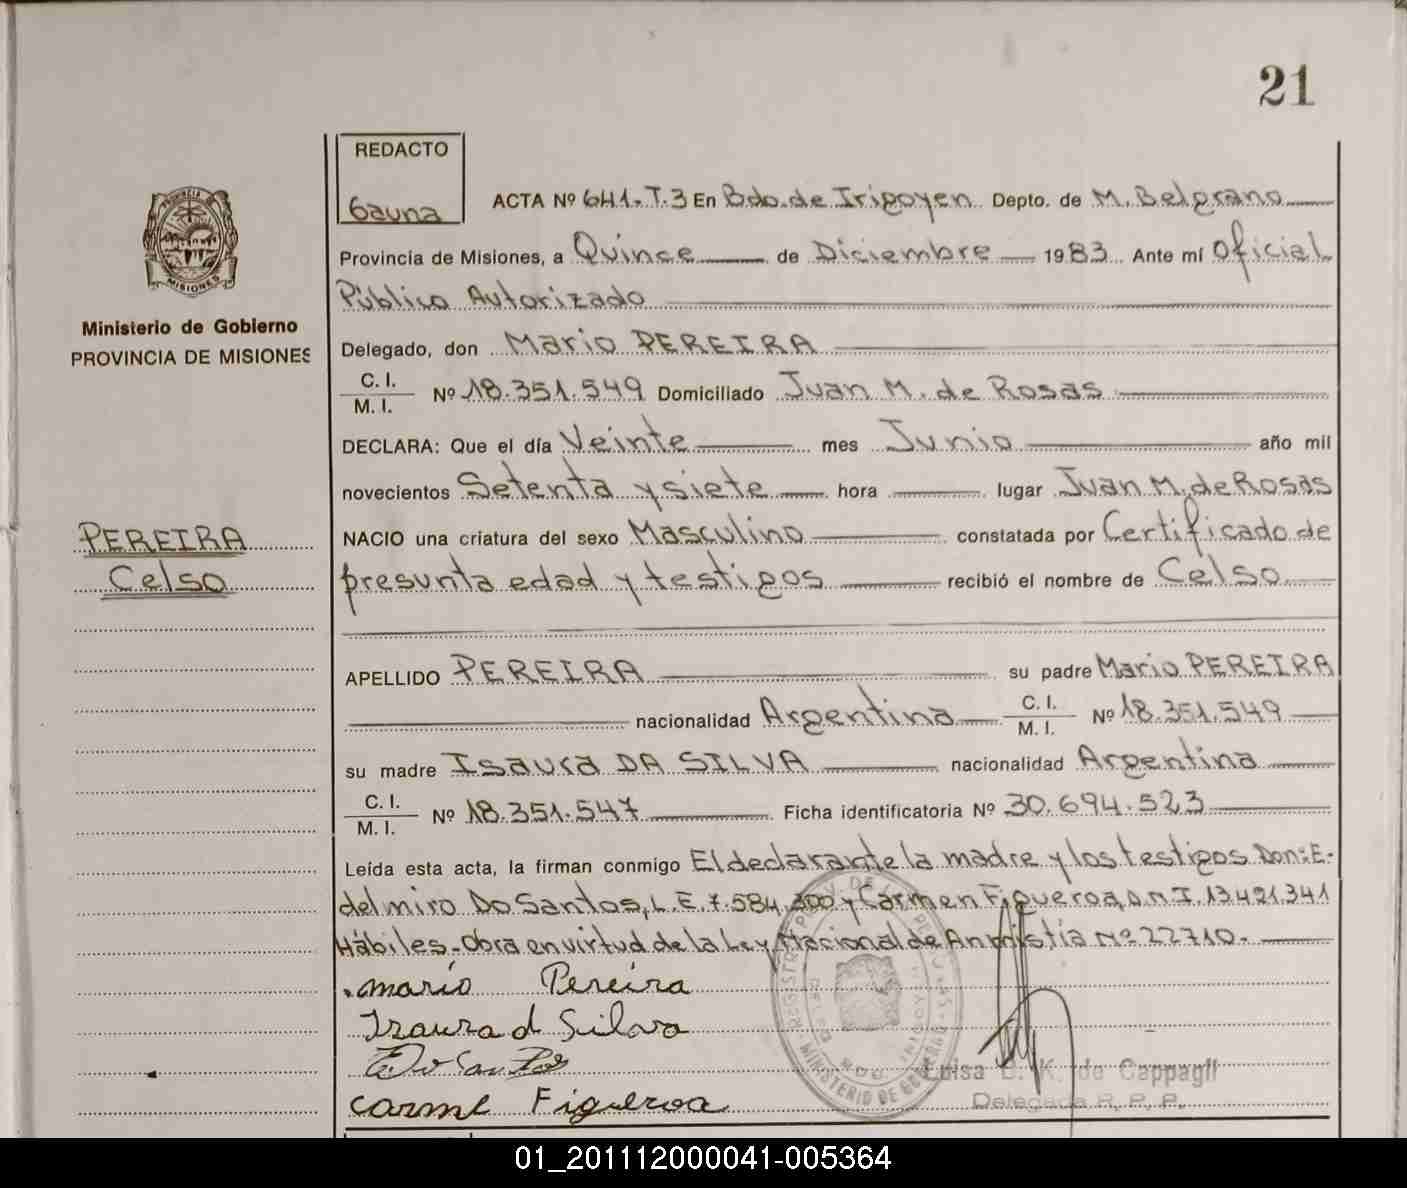 21
REDACTO
Gauna
ACTA Nº 641. T.3 En Bdo. de Irigoyen Depto. de M. Belgrano
Provincia de Misiones, a Quince de Diciembre 1983 Ante mí Oficial
Público Autorizado
Ministerio de Gobierno
PROVINCIA DE MISIONES
Delegado, don Mario PEREIRA
C. I.
M. I. Nº 18.351.549 Domiciliado Juan M. de Rosas
DECLARA: Que el día Veinte mes Junio año mil
novecientos Setenta y siete hora lugar Juan M. de Rosas
PEREIRA
Celso
NACIO una criatura del sexo Masculino constatada por Certificado de
presunta edad y testigos recibió el nombre de Celso
APELLIDO PEREIRA su padre Mario PEREIRA
nacionalidad Argentina C. I. M. I. Nº 18.351.549
su madre Isaura DA SILVA nacionalidad Argentina
C. I.
M. I. Nº 18.351.547 Ficha identificatoria Nº 30.694.523
Leída esta acta, la firman conmigo El declarante la madre y los testigos Don: E-
delmiro Do Santos, L. E. 7.584.300 y Carmen Figueroa, D.N.I. 13.421.341
Hábiles-Obra en virtud de la Ley Nacional de Amnistía Nº 22710.-
mario Pereira
Izaura d Silva
Carme Figueroa
Luisa B. K. de Cappagli
Delegada R. P. P.
01_201112000041-005364